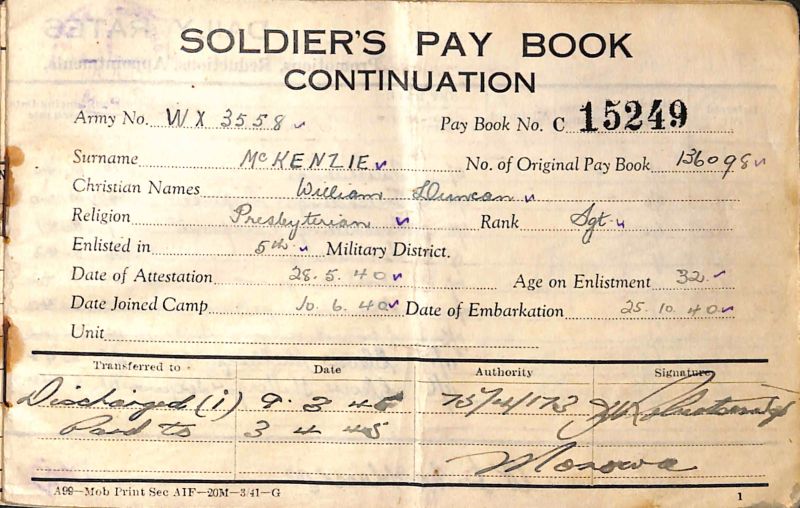 SOLDIER'S PAY BOOK
CONTINUATION
Army No. WX 3558 Pay Book No. C 15249
Surname McKENZIE No. of Original Pay Book 136098
Christian Names William Duncan
Religion Presbyterian Rank Sgt
Enlisted in 5th Military District.
Date of Attestation 28.5.40 Age on Enlistment 32
Date Joined Camp 10.6.40 Date of Embarkation 25.10.40
Unit
Transferred to Date Authority Signature
Discharged (i) 9.3.45 75/4/173
Paid to 3 4 45
A99—Mob Print Sec AIF—20M—3/41—G 1